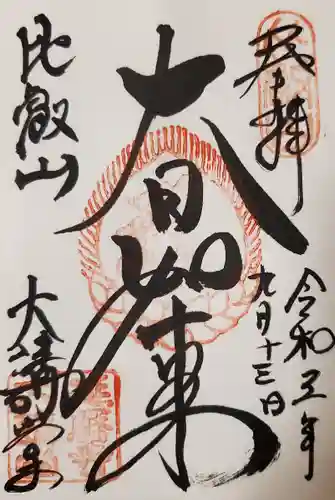 奉拝
令和五年
九月十三日
大日如来
比叡山
大講堂